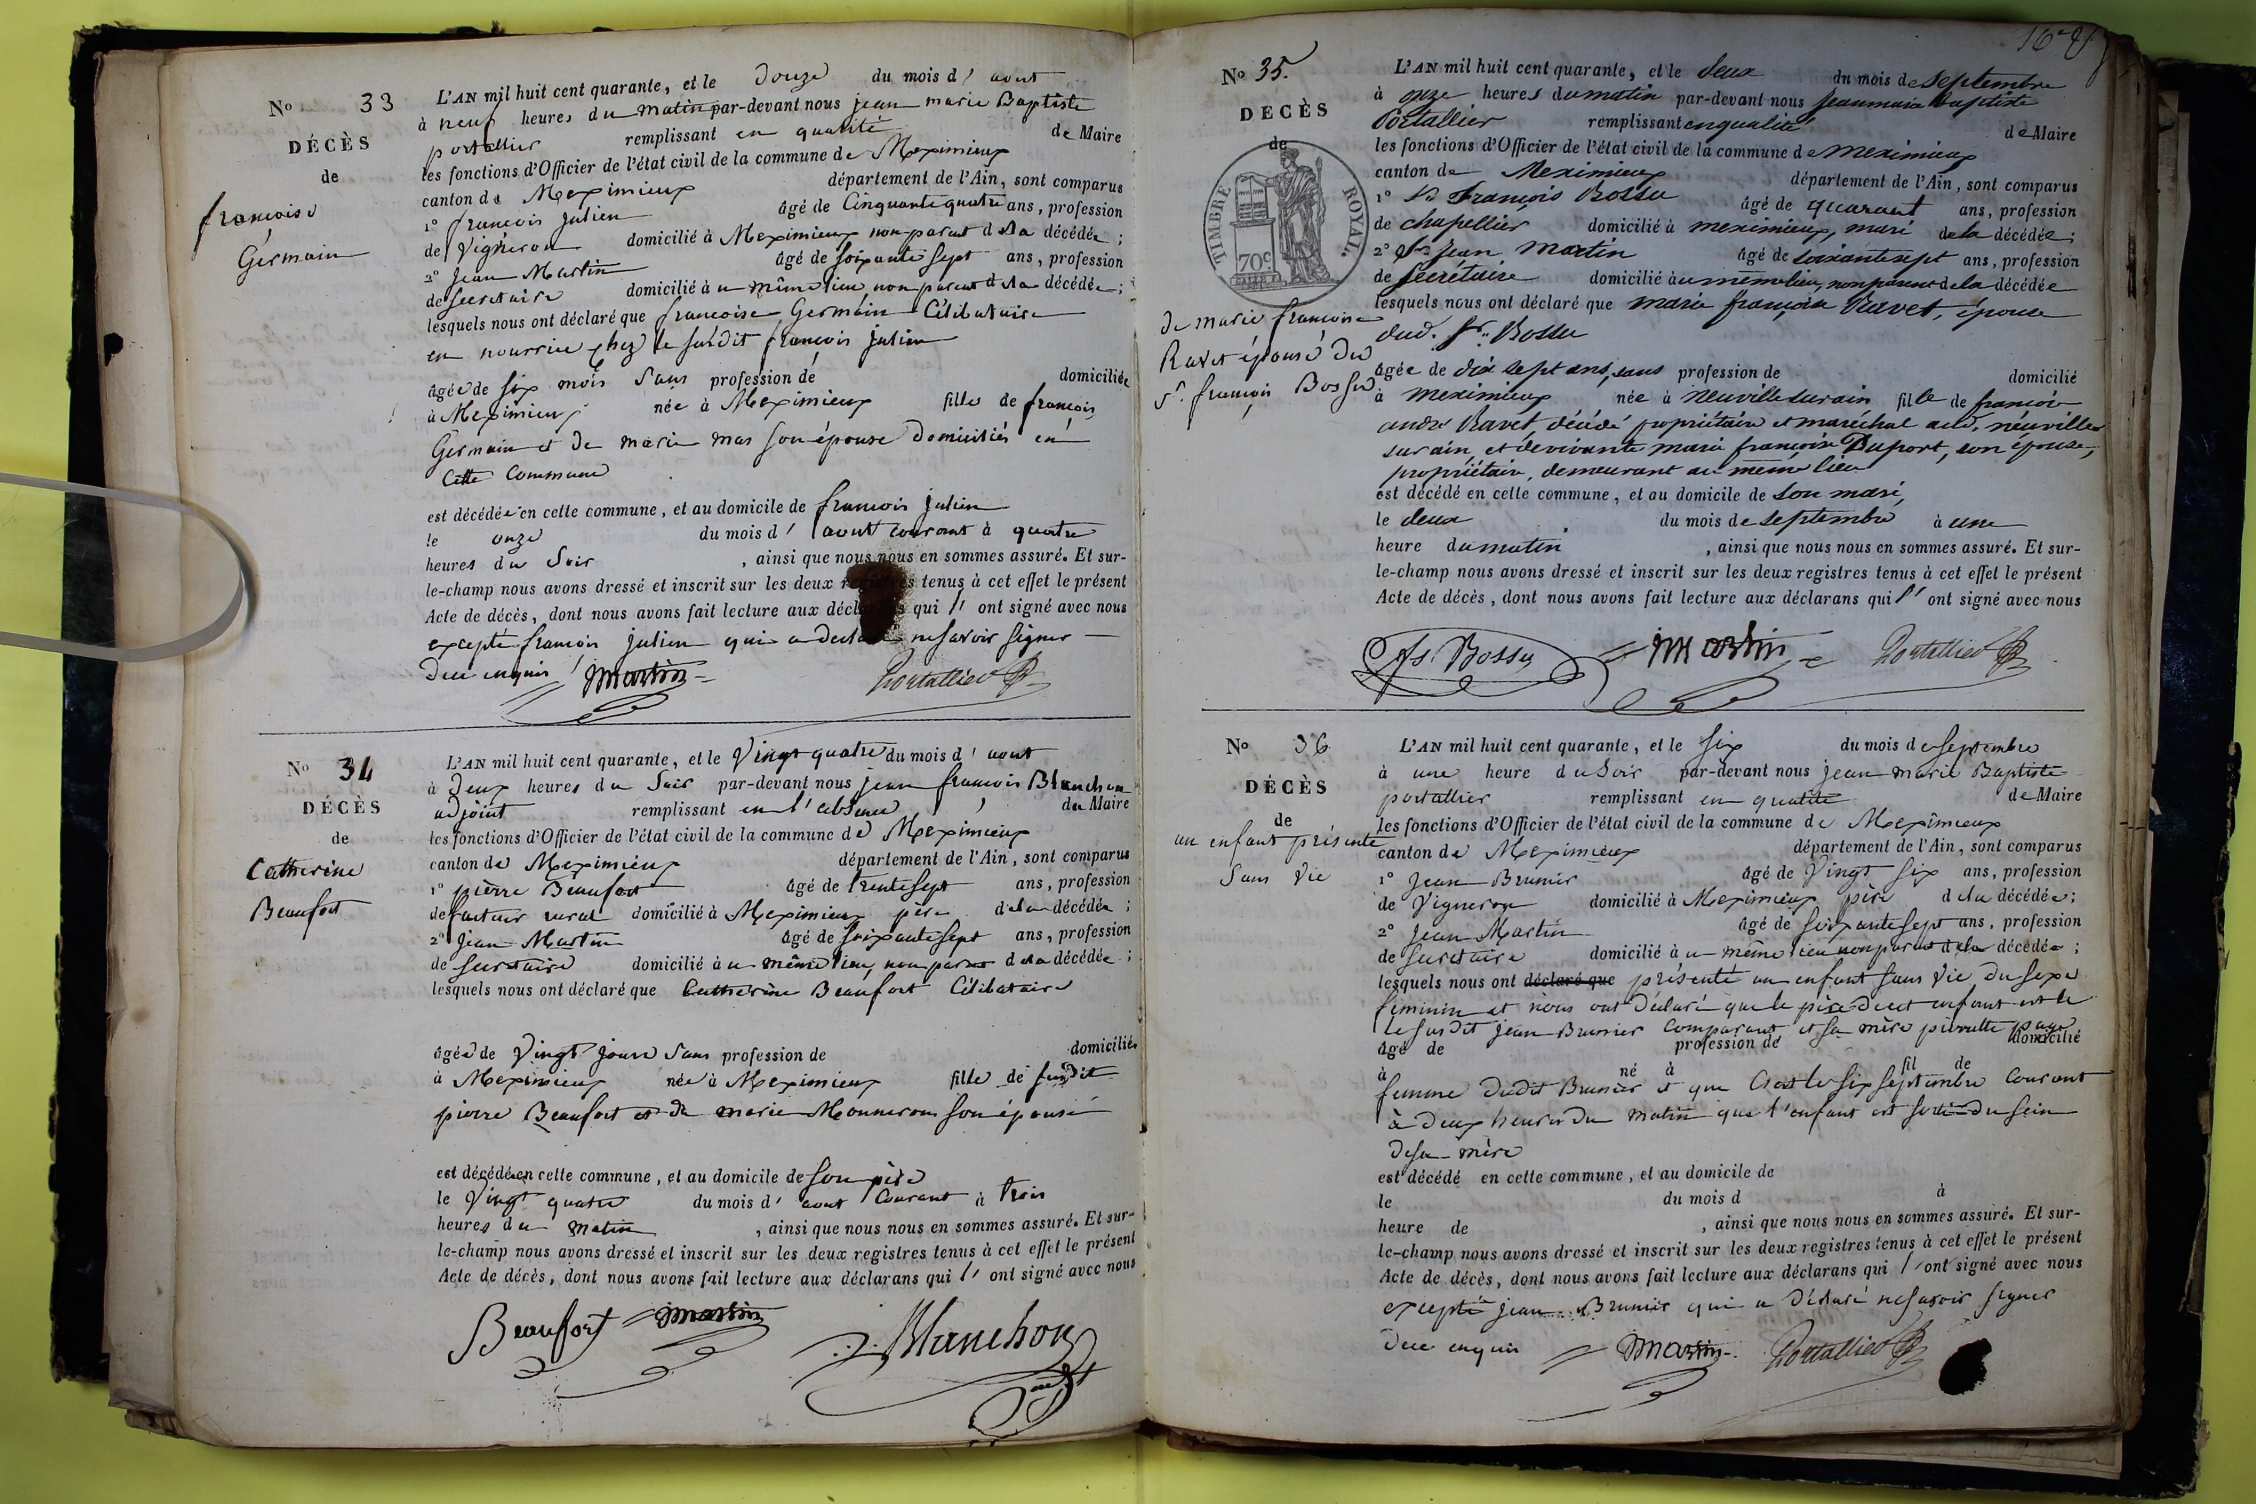 No 33
DÉCÈS
de
françoise
Germain
L'AN mil huit cent quarante, et le douze du mois d' aout
à neuf heures du matin par-devant nous jean marie Baptiste
portallier remplissant en qualité de Maire
les fonctions d'Officier de l'état civil de la commune de Meximieux
canton de Meximieux département de l'Ain, sont comparus
1° francois julien âgé de Cinquante quatre ans, profession
de Vigneron domicilié à Meximieux non parent de la décédée;
2° Jean Martin âgé de soixante sept ans, profession
de Secretaire domicilié à u même lieu non parent de la décédée;
lesquels nous ont déclaré que francoise Germain Célibataire
en nourrice chez le susdit francois julien
âgée de six mois Sans profession de domiciliée
à Meximieux née à Meximieux fille de francois
Germain et de marie mas son épouse domiciliés en
Cette Commune
est décédée en cette commune, et au domicile de francois julien
le onze du mois d' aout courant à quatre
heures du Soir, ainsi que nous nous en sommes assuré. Et sur-
le-champ nous avons dressé et inscrit sur les deux registres tenus à cet effet le présent
Acte de décès, dont nous avons fait lecture aux déclarans qui l' ont signé avec nous
excepté francois julien qui a déclaré ne savoir signer
Dece enquis Martin Portallier
No 34
DÉCÈS
de
Catherine
Beaufort
L'AN mil huit cent quarante, et le Vingt quatre du mois d' aout
à Deux heures du Soir par-devant nous jean francois Blanchon
adjoint remplissant en l'absence du Maire
les fonctions d'Officier de l'état civil de la commune de Meximieux
canton de Meximieux département de l'Ain, sont comparus
1° pierre Beaufort âgé de trente sept ans, profession
de facteur rural domicilié à Meximieux père de la décédée;
2° Jean Martin âgé de soixante sept ans, profession
de Secretaire domicilié à u même lieu, non parent de la décédée;
lesquels nous ont déclaré que Catherine Beaufort Célibataire
âgée de Vingt jours Sans profession de domiciliée
à Meximieux née à Meximieux fille de susdit
pierre Beaufort et de marie Monneron son épouse
est décédée en cette commune, et au domicile de son père
le Vingt quatre du mois d' aout Courant à trois
heures du matin, ainsi que nous nous en sommes assuré. Et sur-
le-champ nous avons dressé et inscrit sur les deux registres tenus à cet effet le présent
Acte de décès, dont nous avons fait lecture aux déclarans qui l' ont signé avec nous
Beaufort Martin Blanchon
No 35.
DÉCÈS
de
TIMBRE ROYAL
70c
de marie francoise
Ravet épouse du
Sr. françois Bossu
L'AN mil huit cent quarante, et le deux du mois de septembre
à onze heures du matin par-devant nous jean marie baptiste
Portallier remplissant en qualité de Maire
les fonctions d'Officier de l'état civil de la commune de meximieux
canton de Meximieux département de l'Ain, sont comparus
1° Sr François Bossu âgé de quarant ans, profession
de chapellier domicilié à meximieux, mari de la décédée;
2° Sr Jean Martin âgé de soixante sept ans, profession
de secrétaire domicilié à u même lieu, non parent de la décédée
lesquels nous ont déclaré que marie françoise Ravet, épouse
dud. Sr. Bossu
âgée de dix sept ans, sans profession de domicilié
à meximieux née à neuville sur ain fille de françois
andré Ravet, décédé propriétaire et maréchal aud. neuville
sur ain, et de vivante marie françoise Duport, son épouse,
propriétaire, demeurant au même lieu
est décédé en cette commune, et au domicile de son mari,
le deux du mois de septembre à une
heure du matin, ainsi que nous nous en sommes assuré. Et sur-
le-champ nous avons dressé et inscrit sur les deux registres tenus à cet effet le présent
Acte de décès, dont nous avons fait lecture aux déclarans qui l' ont signé avec nous
fs. Bossu Martin Portallier
No 36
DÉCÈS
de
un enfant présenté
Sans Vie
L'AN mil huit cent quarante, et le Six du mois de septembre
à une heure du Soir par-devant nous jean marie Baptiste
portallier remplissant en qualité de Maire
les fonctions d'Officier de l'état civil de la commune de Meximieux
canton de Meximieux département de l'Ain, sont comparus
1° Jean Brunier âgé de Vingt Six ans, profession
de Vigneron domicilié à Meximieux père de la décédée;
2° Jean Martin âgé de soixante sept ans, profession
de Secretaire domicilié à u même lieu non parent de la décédée;
lesquels nous ont déclaré que présenté un enfant Sans Vie du Sexe
féminin et nous ont déclaré que le père de cet enfant est le
le susdit jean Brunier comparant et sa mère pierrette page
âgé de profession de domicilié
à né à fil de
femme dudit Brunier et que C'est le Six septembre courant
à Deux heures du matin que l'enfant est sorti du sein
de sa mère
est décédé en cette commune, et au domicile de
le du mois d à
heure de, ainsi que nous nous en sommes assuré. Et sur-
le-champ nous avons dressé et inscrit sur les deux registres tenus à cet effet le présent
Acte de décès, dont nous avons fait lecture aux déclarans qui l' ont signé avec nous
excepté jean Brunier qui a déclaré ne savoir signer
Dece enquis Martin Portallier